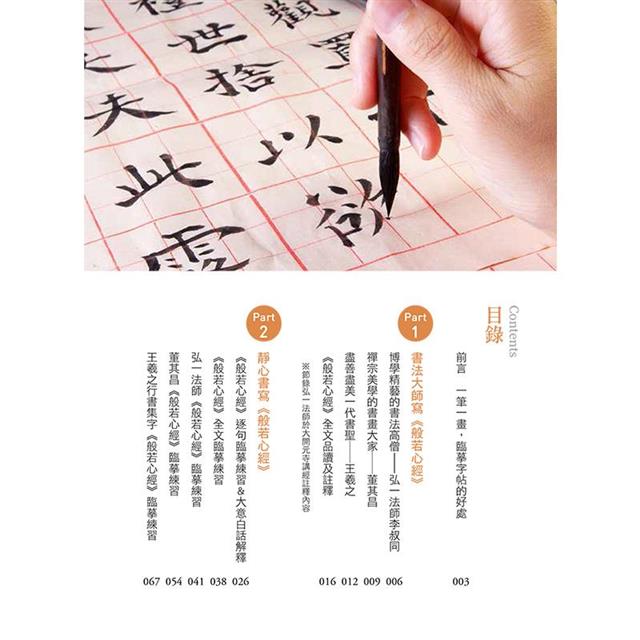 觀
世捨以欲
夫此靈
Contents
目錄
前言　一筆一畫，臨摹字帖的好處 003
Part 1
書法大師寫《般若心經》
博學精藝的書法高僧——弘一法師李叔同 006
禪宗美學的書畫大家——董其昌 009
盡善盡美一代書聖——王羲之 012
《般若心經》全文品讀及註釋 016
※節錄弘一法師於大開元寺講經註釋內容
Part 2
靜心書寫《般若心經》
《般若心經》逐句臨摹練習＆大意白話解釋 026
《般若心經》全文臨摹練習 038
弘一法師《般若心經》臨摹練習 041
董其昌《般若心經》臨摹練習 054
王羲之行書集字《般若心經》臨摹練習 067